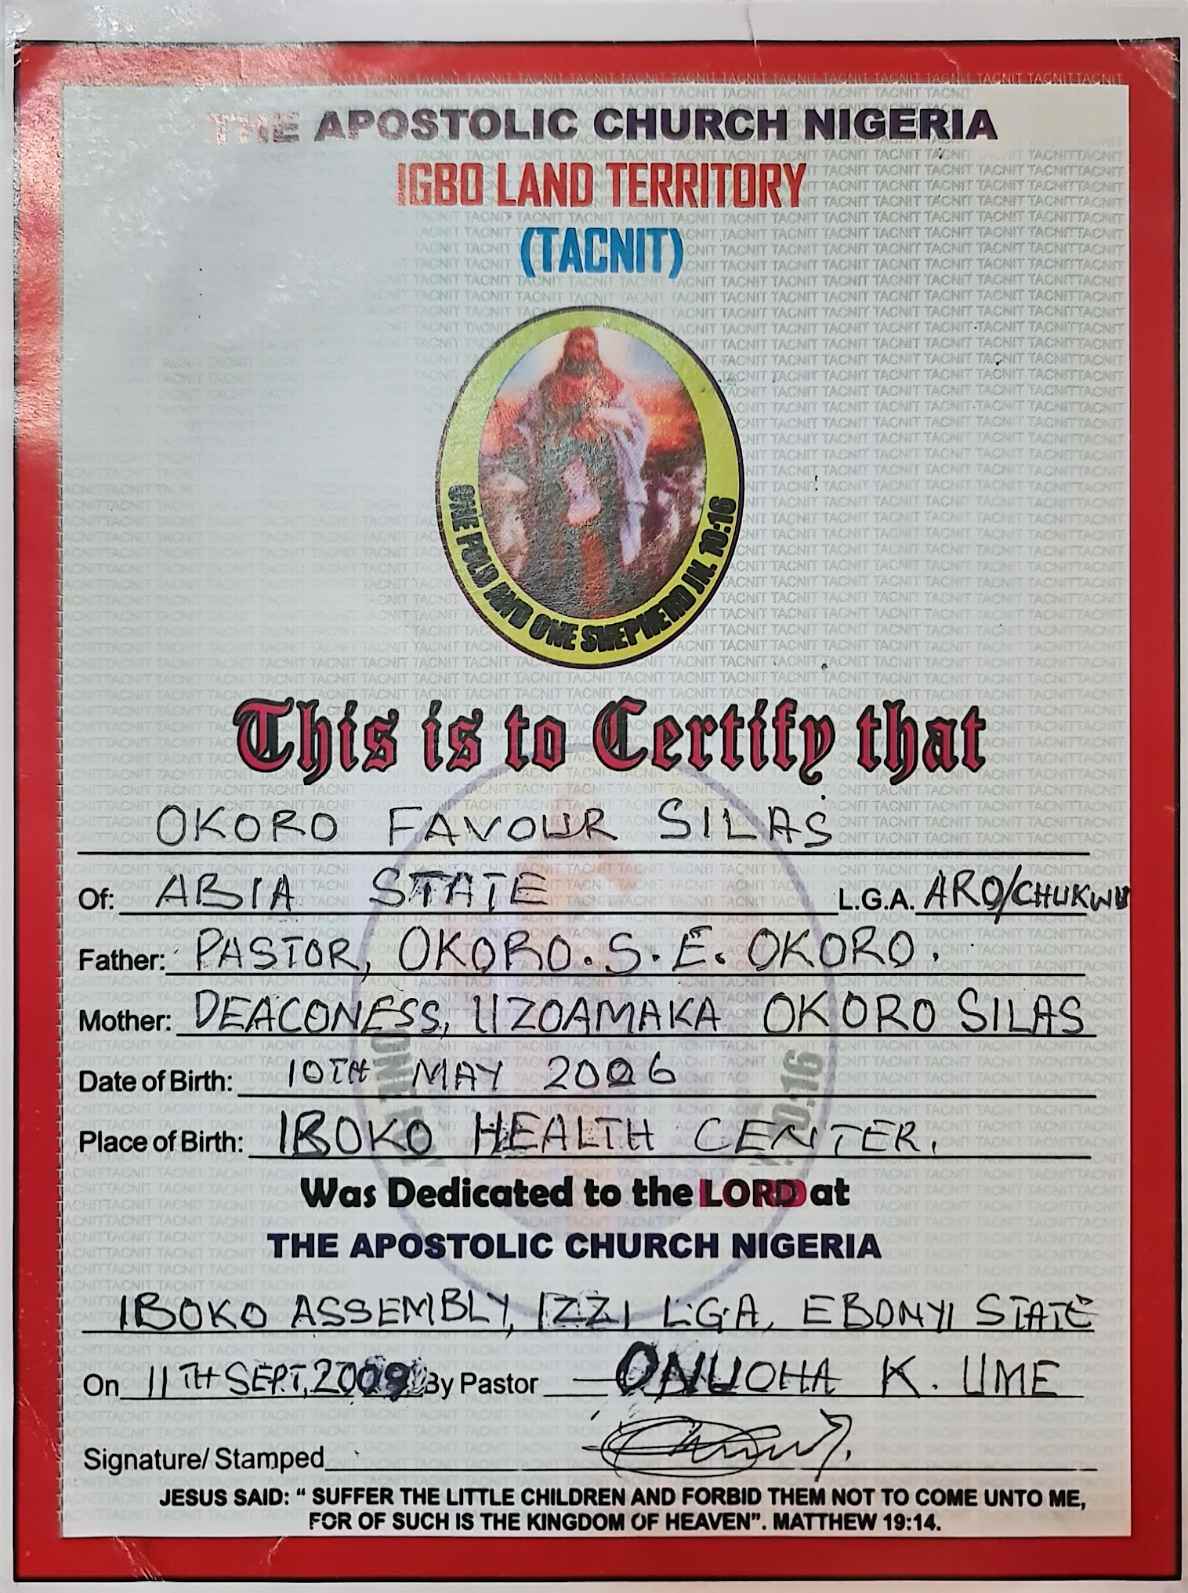 THE APOSTOLIC CHURCH NIGERIA
IGBO LAND TERRITORY
(TACNIT)
ONE FOLD AND ONE SHEPHERD JN. 10:16
This is to Certify that
OKORO FAVOUR SILAS
Of: ABIA STATE L.G.A. ARO/CHUKWU
Father: PASTOR, OKORO. S. E. OKORO.
Mother: DEACONESS, UZOAMAKA OKORO SILAS
Date of Birth: 10TH MAY 2006
Place of Birth: IBOKO HEALTH CENTER.
Was Dedicated to the LORD at
THE APOSTOLIC CHURCH NIGERIA
IBOKO ASSEMBLY, IZZI L.G.A, EBONYI STATE
On 11TH SEPT, 2009 By Pastor ONUOHA K. UME
Signature/ Stamped
JESUS SAID: “ SUFFER THE LITTLE CHILDREN AND FORBID THEM NOT TO COME UNTO ME,
FOR OF SUCH IS THE KINGDOM OF HEAVEN”. MATTHEW 19:14.